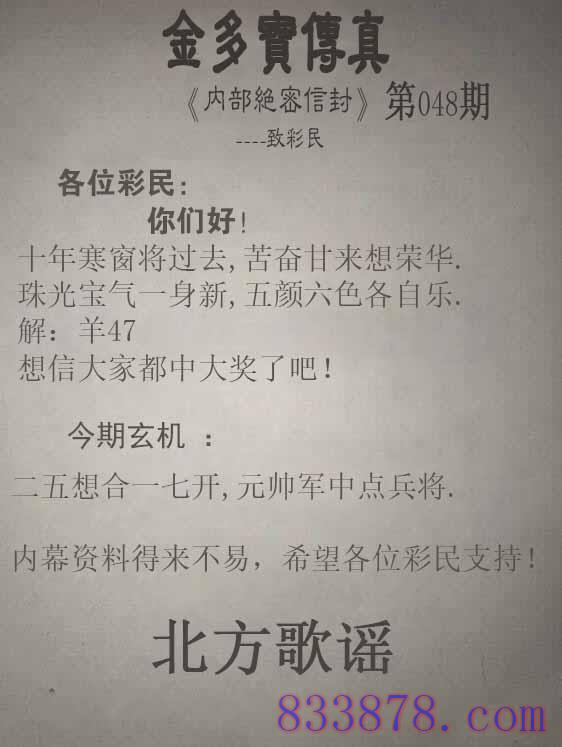 金多寶傳真
《内部絕密信封》第048期
----致彩民
各位彩民:
你们好!
十年寒窗将过去,苦奋甘来想荣华.
珠光宝气一身新,五颜六色各自乐.
解：羊47
想信大家都中大奖了吧!
今期玄机 ：
二五想合一七开,元帅军中点兵将.
内幕资料得来不易，希望各位彩民支持!
北方歌谣
833878.com